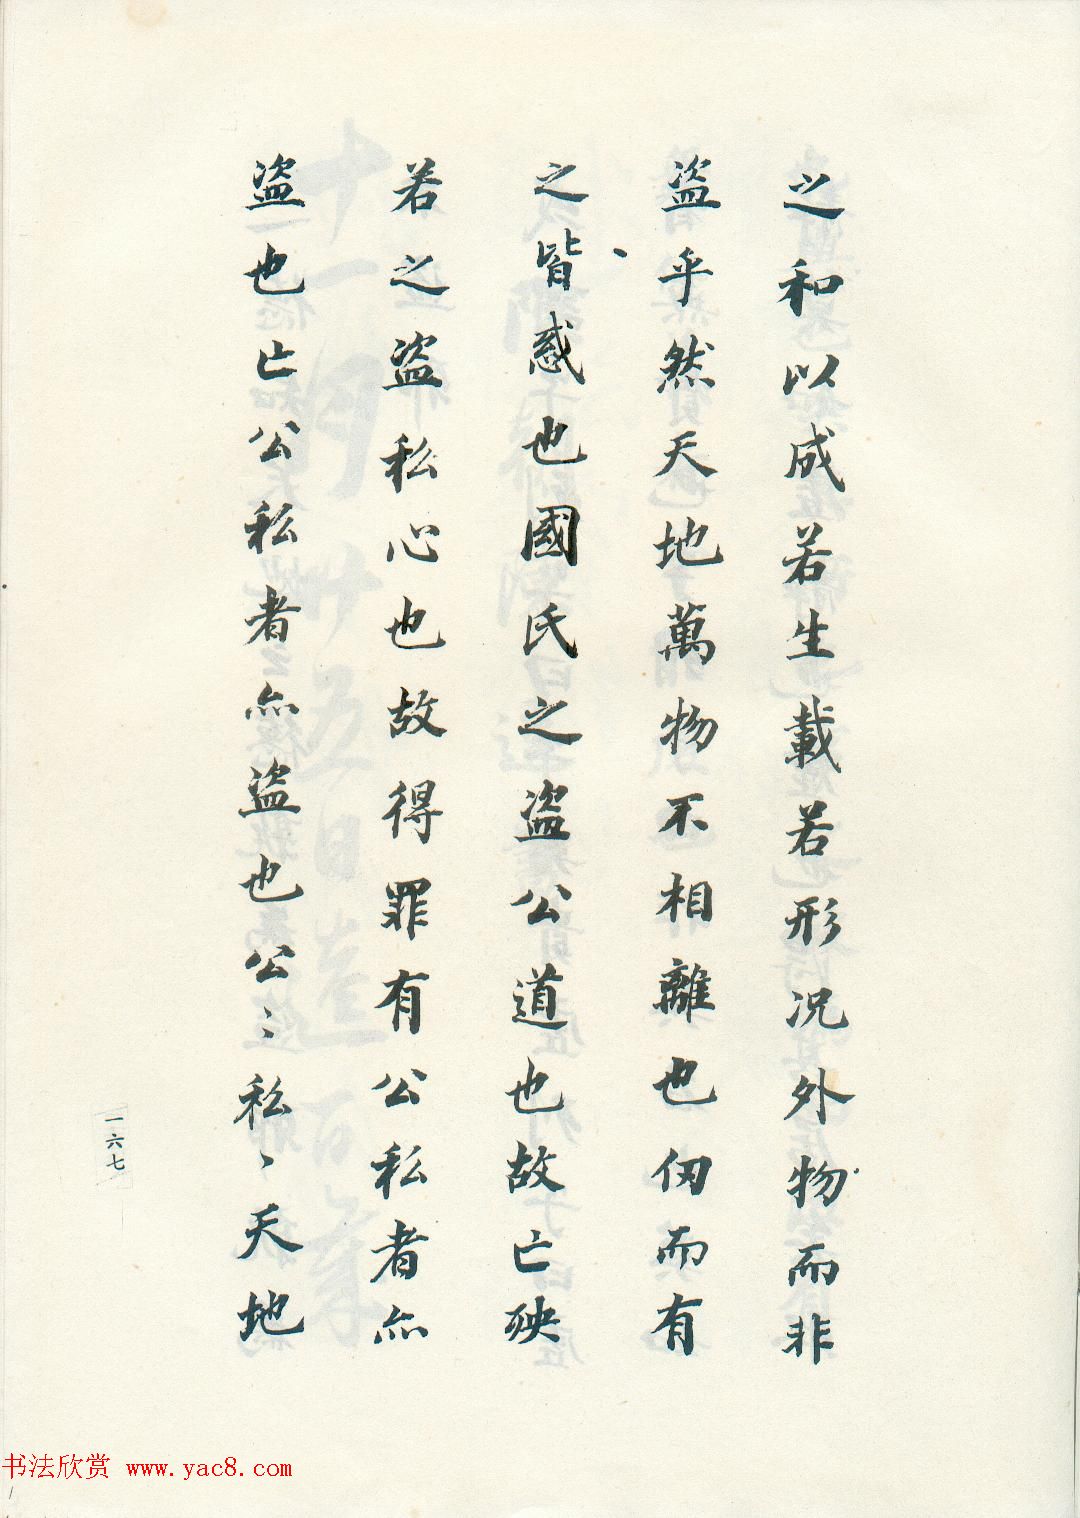 之和以成若生載若形况外物而非
盜乎然天地萬物不相離也仞而有
之皆惑也國氏之盜公道也故亡殃
若之盜私心也故得罪有公私者亦
盜也亡公私者亦盜也公〻私〻天地
一六七
书法欣赏 www.yac8.com